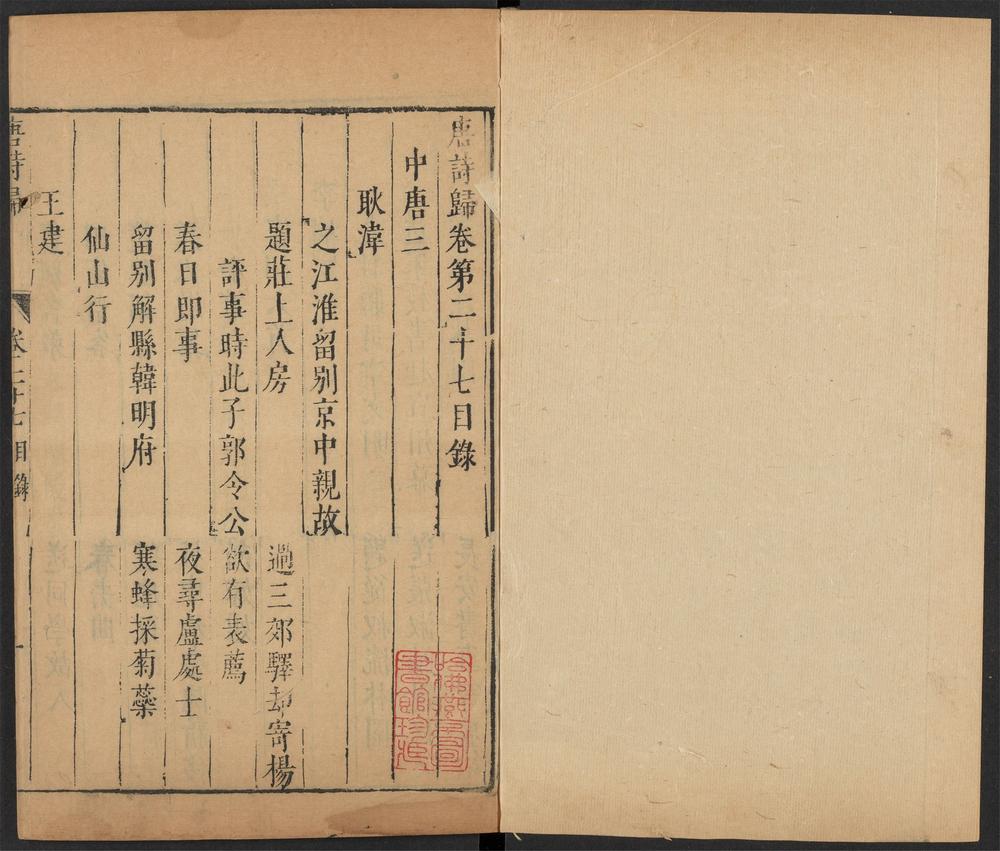 唐詩歸卷第二十七目錄
中唐三
耿湋
之江淮留别京中親故
題莊上人房　過三郊驛却寄楊
評事時此子郭令公欲有表薦
春日即事　夜尋盧處士
留别解縣韓明府　寒蜂採菊蘂
仙山行
王建
唐詩歸　卷二十七目錄　一
哈佛燕京圖
書館珍藏印